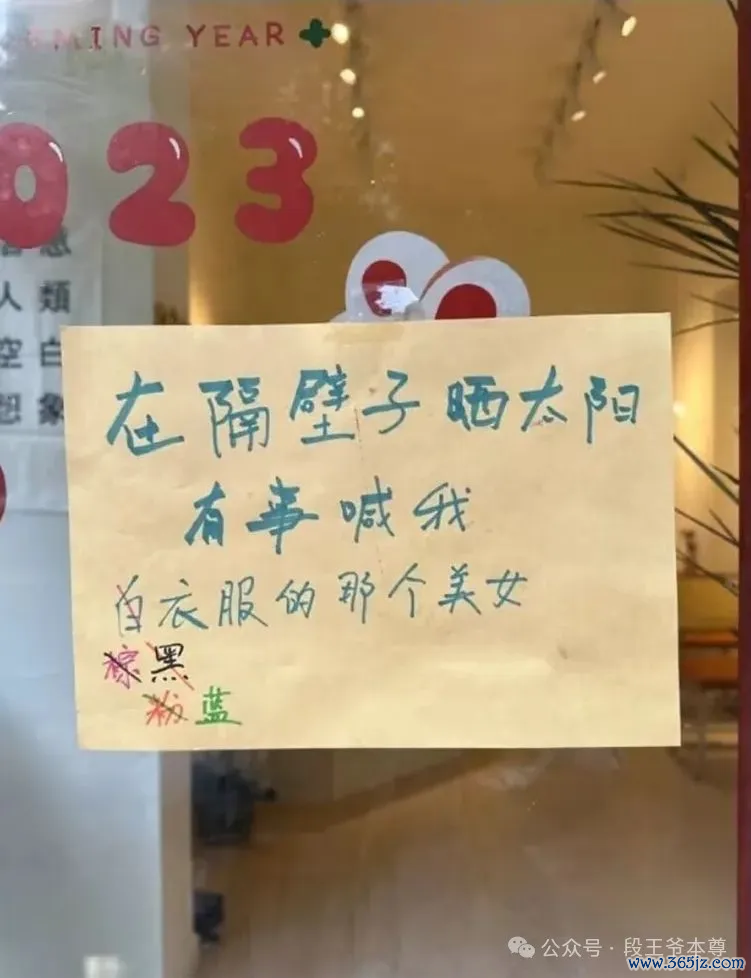 MING YEAR
023
人類
空白
想象
在隔壁子晒太阳
有事喊我
白衣服的那个美女
棕黑
粉蓝
公众号·段王爷本尊
www.365jz.com